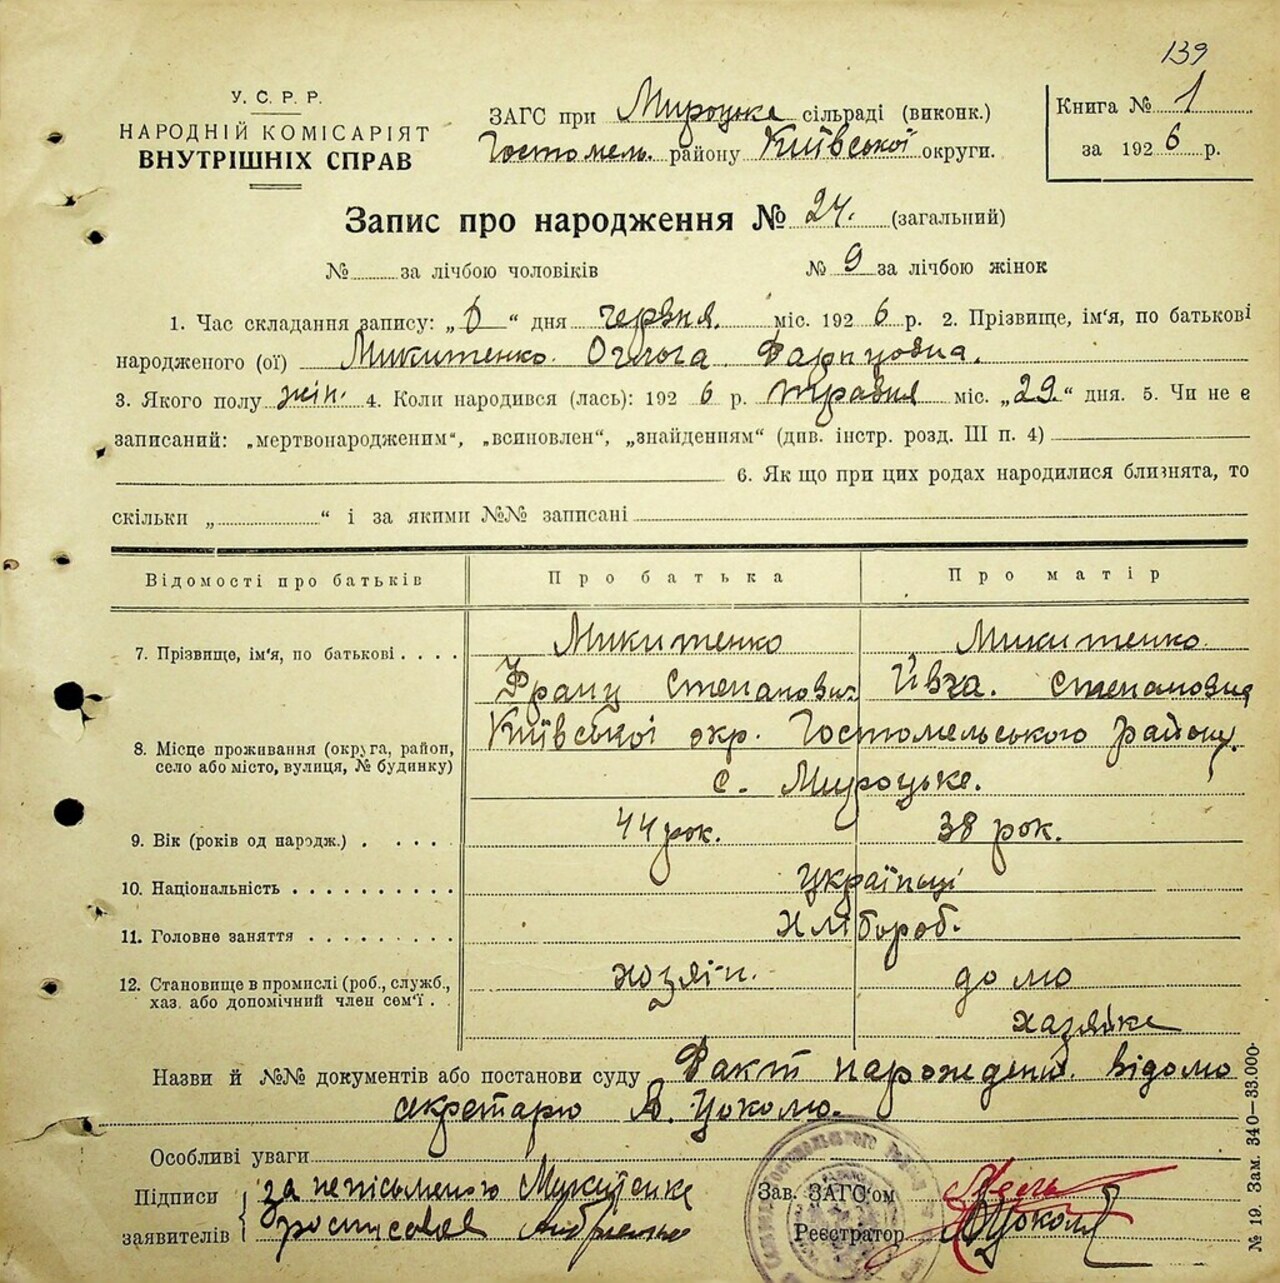 139
У. С. Р. Р.
НАРОДНІЙ КОМІСАРІЯТ
ВНУТРІШНІХ СПРАВ
ЗАГС при Мироцьке сільраді (виконк.)
Гостомель. району Київської округи.
Книга № 1
за 1926 р.
Запис про народження № 24. (загальний)
№ за лічбою чоловіків № 9 за лічбою жінок
1. Час складання запису: „ “ дня червня. міс. 1926 р. 2. Прізвище, ім'я, по батькові
народженого (ої) Микитенко Ольга Францовна.
3. Якого полу жін. 4. Коли народився (лась): 1926 р. травня міс. „29.“ дня. 5. Чи не є
записаний: „мертвонародженим“, „всиновлен“, „знайденням“ (див. інстр. розд. III п. 4)
6. Як що при цих родах народилися близнята, то
скільки „ “ і за якими №№ записані
Відомості про батьків Про батька Про матір
7. Прізвище, ім'я, по батькові Микитенко Микитенко
Франц Степанович Ївга. Степановна
8. Місце проживання (округа, район, село або місто, вулиця, № будинку) Київської окр. Гостомельського району.
с. Мироцьке.
9. Вік (років од народж.) 44 рок. 38 рок.
10. Національність українці
11. Головне заняття хлібороб.
12. Становище в промислі (роб., служб., хаз. або допомічний член сем'ї хозяін. домо
хазяйка
Назви й №№ документів або постанови суду Факт нарождения. відомо
секретарю Я. Цоколю.
Особливі уваги
Підписи заявителів за неписьменою Микитенко
росписався
Зав. ЗАГС'ом
Реєстратор Цоколь
№ 19. Зам. 340—33.000